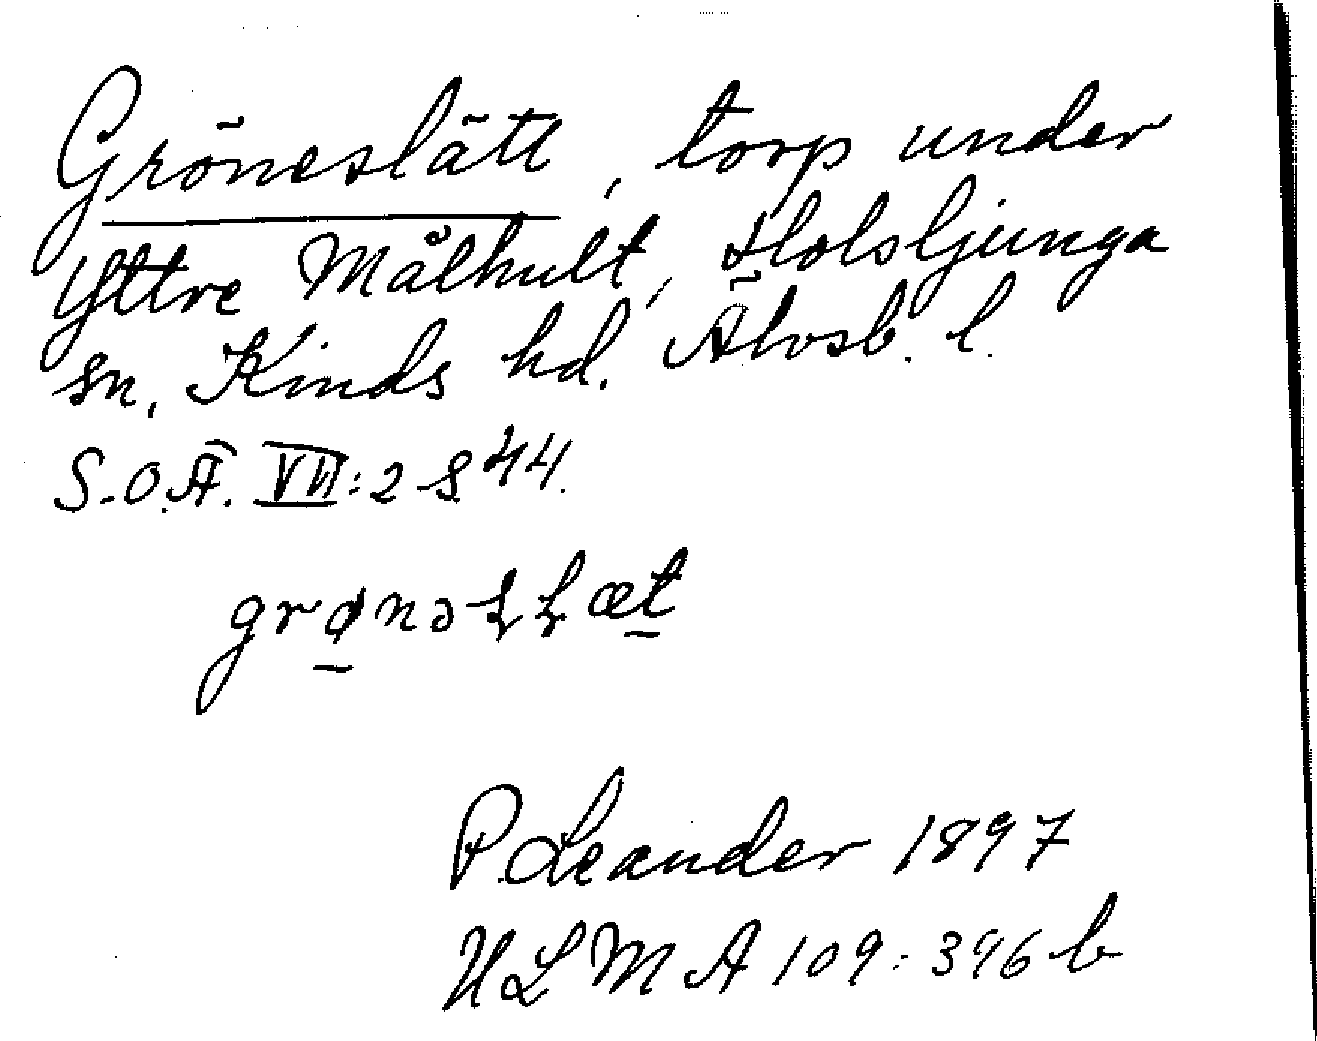 Gröneslätt, torp under
Yttre Målhult, Holsljunga
sn, Kinds hd. Älvsb. l.
S.O.Ä. VII:2 s 44.
grønəslæt
P. Leander 1897
ULMA 109:396b